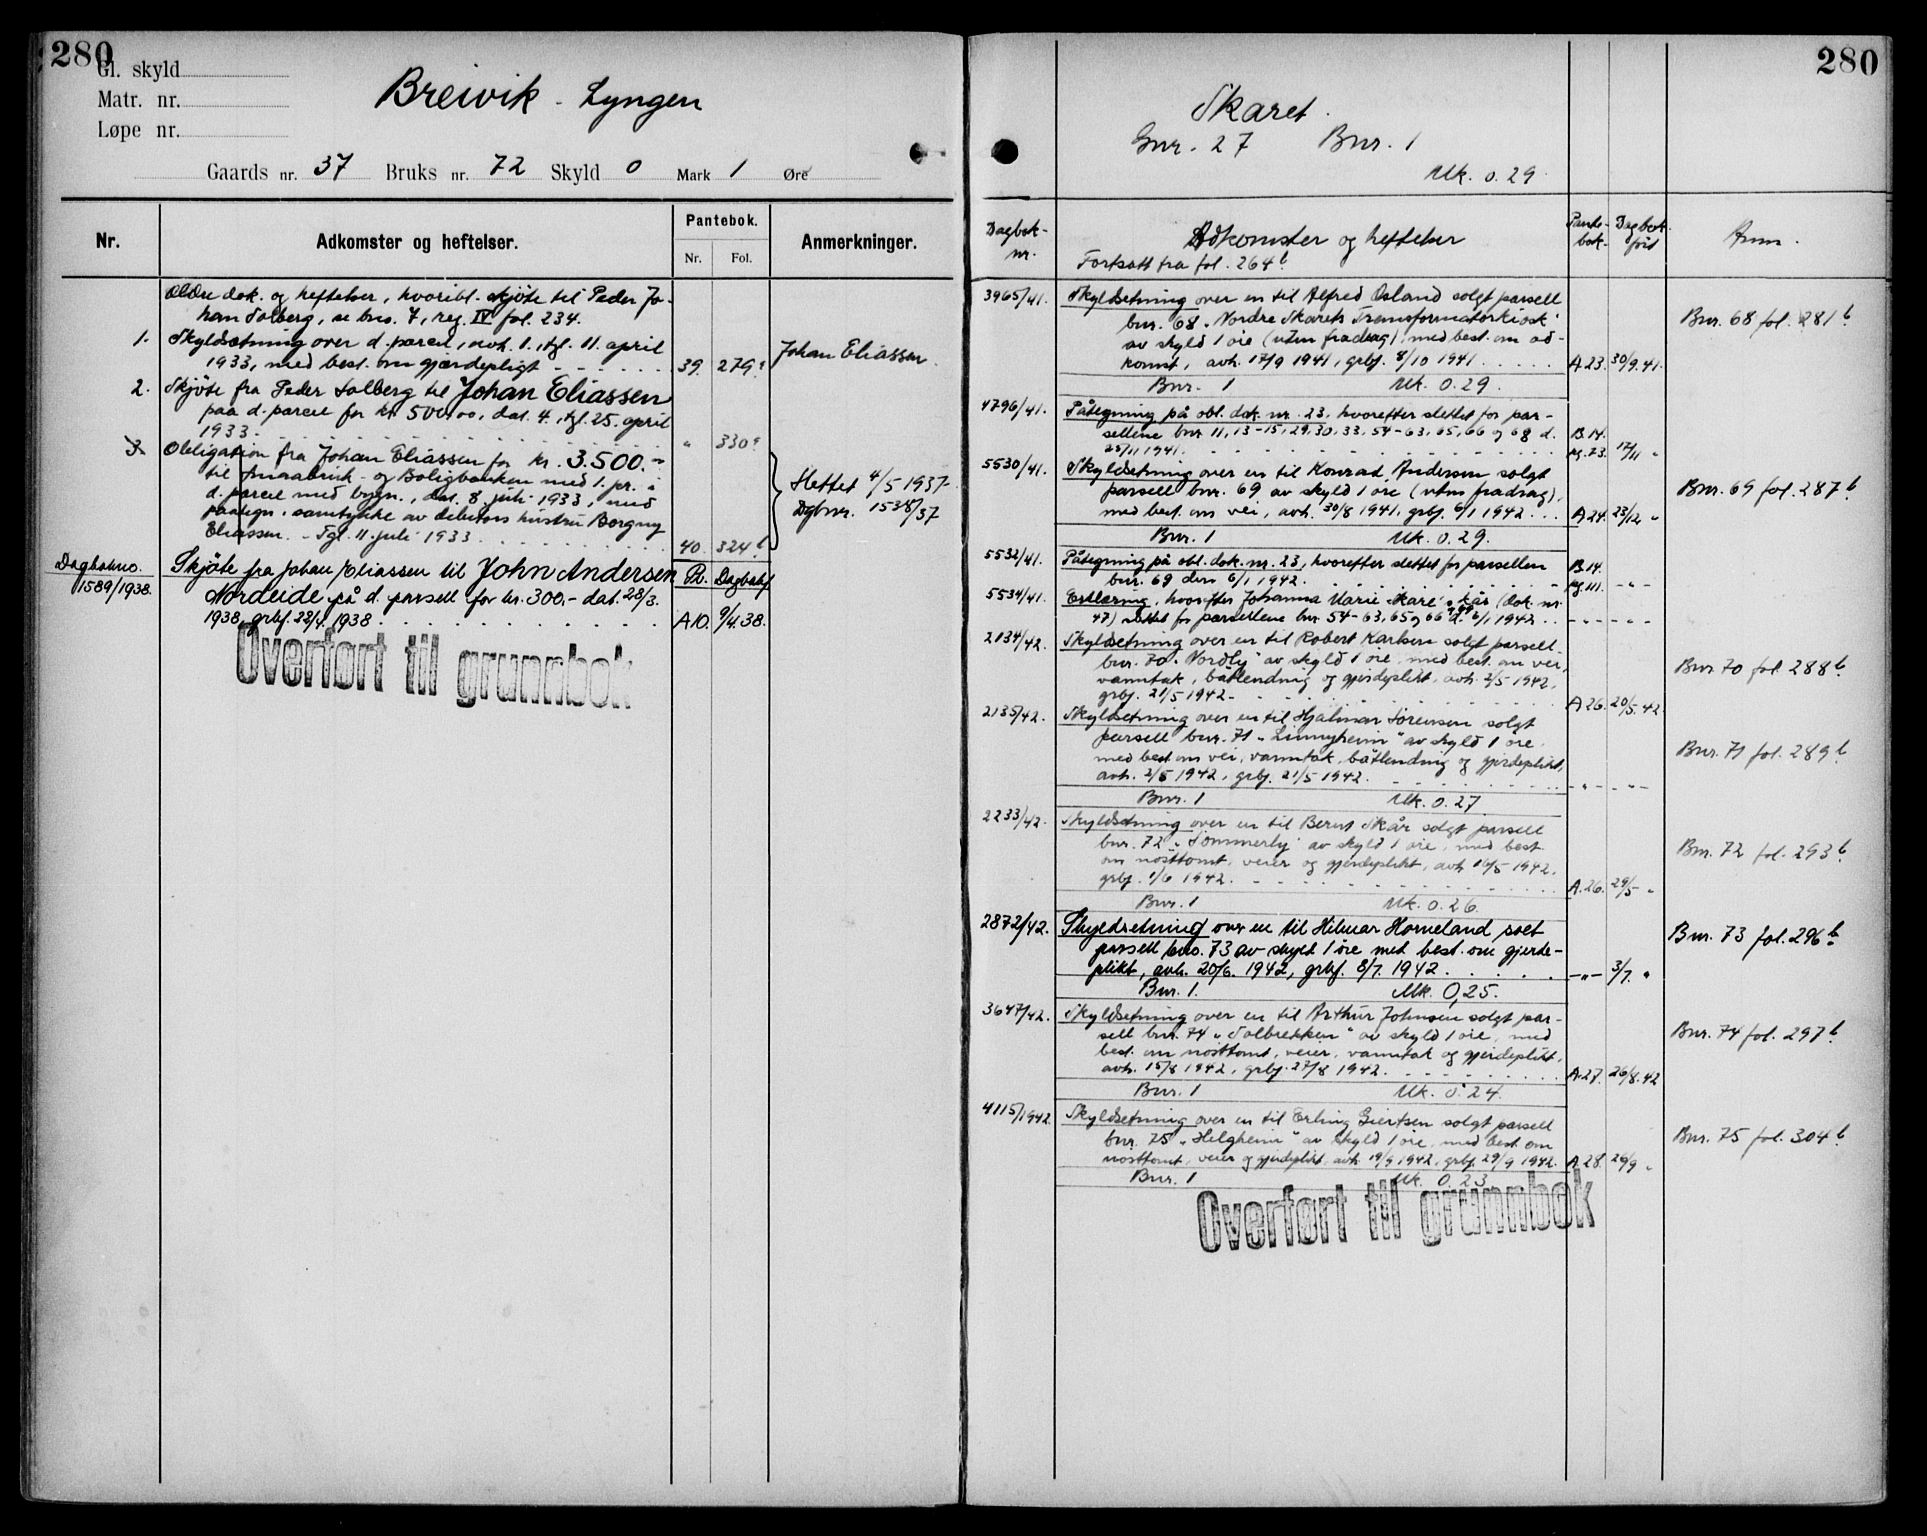 280
Gl. skyld
Matr. nr.
Løpe nr.
Breivik - Lyngen
Gaards nr. 37 Bruks nr. 72 Skyld 0 Mark 1 Øre
Nr.
Adkomster og heftelser.
Pantebok.
Nr. Fol.
Anmerkninger.
Ældre dok. og heftelser, hvoribl. skjøte til Peder Jo-
han Solberg, se bno. 7, reg. IV fol. 234.
1. Skyldsetning over d. parcel, avh. 1., tgl. 11. april
1933, med best. om gjærdepligt - - - - - - 39. 279a Johan Eliassen.
2. Skjøte fra Peder Solberg til Johan Eliassen
paa d. parcel for kr. 500.00, dat. 4., tgl. 25. april
1933. " 330a
3. Obligation fra Johan Eliassen for kr. 3.500.-
til Smaabruk- og Boligbanken med 1. pr. i
d. parcel med bygn., dat. 8 juli 1933, med
paategn. samtykke av debitors hustru Borgny
Eliassen. - Tgl. 11. juli 1933. 40. 324b
Slettet 4/5 1937.
Dgbnr. 1538/37
Dagbokno.
1589/1938.
Skjøte fra Johan Eliassen til John Andersen Pb. Dagbokf
Nordeide på d. parsell for kr. 300,- dat. 28/3.
1938, grbf. 22/4. 1938 A10. 9/4.38.
Overført til grunnbok
280
Skaret.
Gnr. 27 Bnr. 1
Mk. 0.29
Dagbok-
nr.
Adkomster og heftelser
Fortsatt fra fol. 264b
Pante-
bok.
Dagbok
ført
Anm.
3965/41. Skyldsetning over en til Alfred Osland solgt parsell
bnr. 68 "Nordre Skarets Transformatorkiosk"
av skyld 1 øre (uten fradrag), med best. om ad-
komst, avh. 17/9 1941, grbf. 8/10 1941. A.23. 30/9.41.
Bnr. 68 fol. 281b
Bnr. 1 Mk. 0.29.
4796/41. Påtegning på obl. dok. nr. 23, hvorefter slettet for par-
sellene bnr 11, 13-15, 29, 30, 33, 54-63, 65, 66 og 68 d. B.14.
25/11 1941. pg. 73. 17/11 "
5530/41. Skyldsetning over en til Konrad Andersen solgt
parsell bnr. 69 av skyld 1 øre (uten fradrag),
med best. om vei, avh. 30/8 1941, grbf. 6/1 1942. A.24. 23/12 "
Bnr. 69 fol. 287b
Bnr. 1 Mk. 0.29.
5532/41. Påtegning på obl. dok. nr. 23, hvorefter slettet for parsellen B.14.
bnr. 69 den 6/1 1942. pg. 111. - " -
5534/41. Erklæring, hvorefter Johanna Marie Skare's kår (dok. nr.
47) slettet for parsellene bnr. 54-63, 65 og 66 d. 6/1 1942.
2134/42. Skyldsetning over en til Robert Karlsen solgt parsell
bnr. 70 "Nordly" av skyld 1 øre, med best. om vei,
vanntak, båtlending og gjerdeplikt, avh. 2/5 1942,
grbf. 21/5 1942 - A.26. 20/5.42
Bnr 70 fol 288b
2135/42. Skyldsetning over en til Hjalmar Sørensen solgt
parsell bnr. 71 av skyld 1 øre,
med best om vei, vanntak, båtlending og gjerdeplikt,
avh. 2/5 1942, grbf. 21/5 1942. - " - - " -
Bnr. 71 fol. 289b
Bnr. 1 Mk. 0.27
2233/42. Skyldsetning over en til Bernt Skår solgt parsell
bnr. 72 "Sommerly" av skyld 1 øre, med best
om nosttomt, veier og gjerdeplikt, avh 16/5 1942,
grbf. 1/6 1942. A.26. 29/5 "
Bnr. 72 fol. 293b
Bnr. 1 Mk. 0.26.
2872/42. Skyldsetning over en til Hilmar Horneland solt
parsell bno. 73 av skyld 1 øre met best. om gjerde-
plikt, avh. 20/6. 1942, grbf. 8/7. 1942. - " - 3/7. "
Bnr. 73 fol. 296b
Bnr. 1. Mk. 0,25.
3647/42. Skyldsetning over en til Arthur Johnsen solgt par-
sell bnr. 74 "Solbrekken" av skyld 1 øre, med
best. om nosttomt, veier, vanntak og gjerdeplikt,
avh. 15/8 1942, grbf. 27/8 1942. A.27. 26/8.42
Bnr. 74 fol. 297b
Bnr. 1 Mk. 0.24.
4115/1942. Skyldsetning over en til Erling Giertsen solgt parsell
bnr. 75 "Helgheim" av skyld 1 øre, med best. om
nosttomt, veier og gjerdeplikt, avh 19/9 1942, grbf. 29/9 1942. A.28. 29/9 "
Bnr. 75 fol. 304b
Bnr. 1 Mk. 0.23
Overført til grunnbok